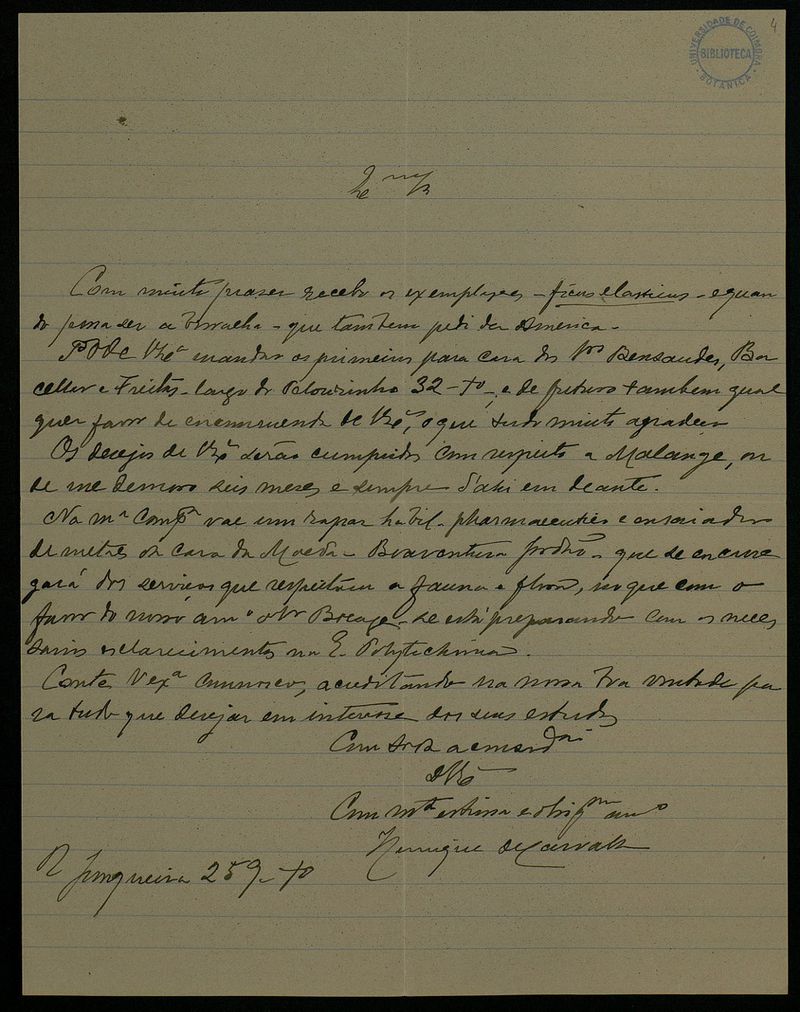 4
UNIVERSIDADE DE COIMBRA
BIBLIOTECA
BOTANICA
Com muito praser recebo os exemplares - ficus elasticus - e quan
do possa ser a borracha - que tambem pedi da America -
Póde mandar os primeiros para casa dos Bensaudes, Bar
cellos e Freitas - largo do Pelourinho 32 - e de futuro tambem qual
quer favor de encommenda de o que tudo muito agradeço
Os desejos de serão cumpridos com respeito a Malange, on
de me demoro seis mezes e sempre d'ahi em deante.
Na mª Compª vae um rapaz habil - pharmaceutico e ensaiador
de metaes da casa da Moeda - Boaventura - que se encarre
gará dos serviços que respeitam a fauna e flora, no que com o
favor do nosso amº o Sr Bocage - se está preparando com os neces
sarios esclarecimentos na E. Polytechnica.
Conte Vexª comnosco, acreditando na nossa boa vontade pa
ra tudo que desejar em interesse dos seus estudos
Com toda a
Com mta estima e amº
Henrique de Carvalho
R Junqueira 259 -